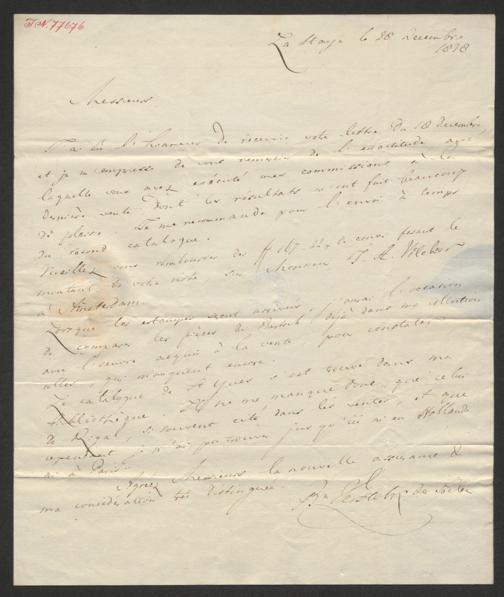 J.N. 77676
La Haye le 28 Decembre
1828
Messieurs
J'ai eû l'honneur de recevoir votre lettre du 18 decembre,
et je m'empresse de vous remercier de l'exactitude avec
laquelle vous avez exécuté mes commissions à la
dernière vente dont les résultats m'ont fait beaucoup
de plaisir. Je me recommande pour l'envoi à temps
du second catalogue.
Veuillez vous rembourser des ff 167. le convi faisant le
montant de votre note sur Monsieur J. A.
à Amsterdam.
Lorsque les estampes seront arrivées, j'aurai l'occasion
de comparer les pièces de déjà dans ma collection
avec l'oeuvre acquis à la vente, pour constater
celles, qui manquent encore.
Le catalogue de s'est trouvé dans ma
bibliothèque. Il ne me manque donc que celui
de Rigal, si souvent cité dans les ventes, et que
cependant je n'ai pu trouver jusqu'ici ni en Hollande
ni à Paris.
Agréez Messieurs la nouvelle assurance de
ma considération très distinguée.
Bn Verstolk de Soelen